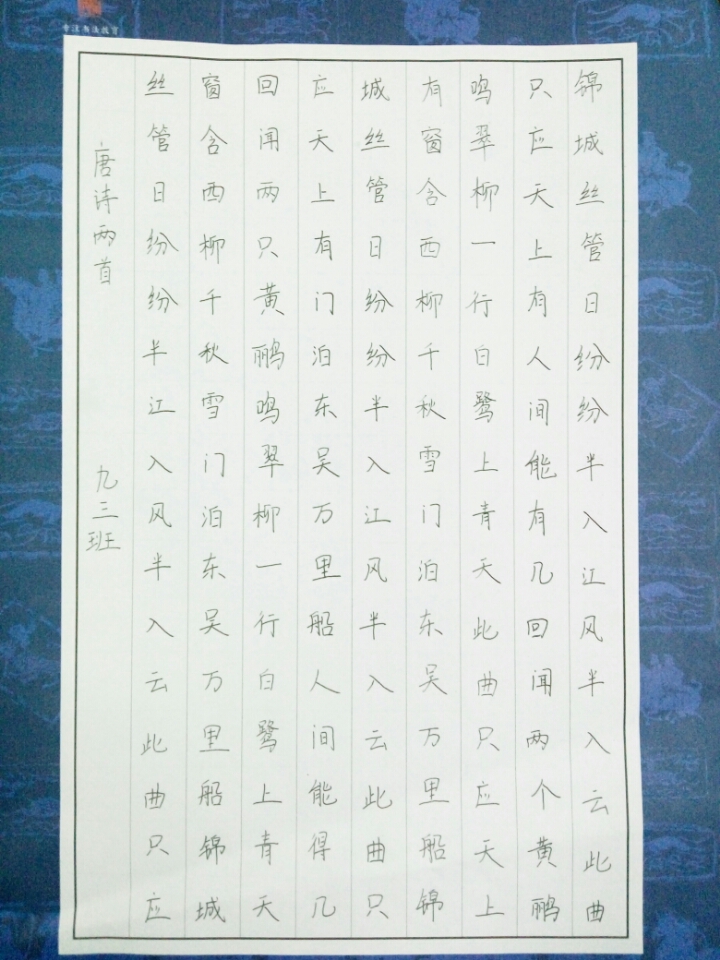 专注书法教育
锦城丝管日纷纷半入江风半入云此曲
只应天上有人间能有几回闻两个黄鹂
鸣翠柳一行白鹭上青天此曲只应天上
有窗含西柳千秋雪门泊东吴万里船锦
城丝管日纷纷半入江风半入云此曲只
应天上有门泊东吴万里船人间能得几
回闻两只黄鹂鸣翠柳一行白鹭上青天
窗含西柳千秋雪门泊东吴万里船锦城
丝管日纷纷半江入风半入云此曲只应
唐诗两首 九三班